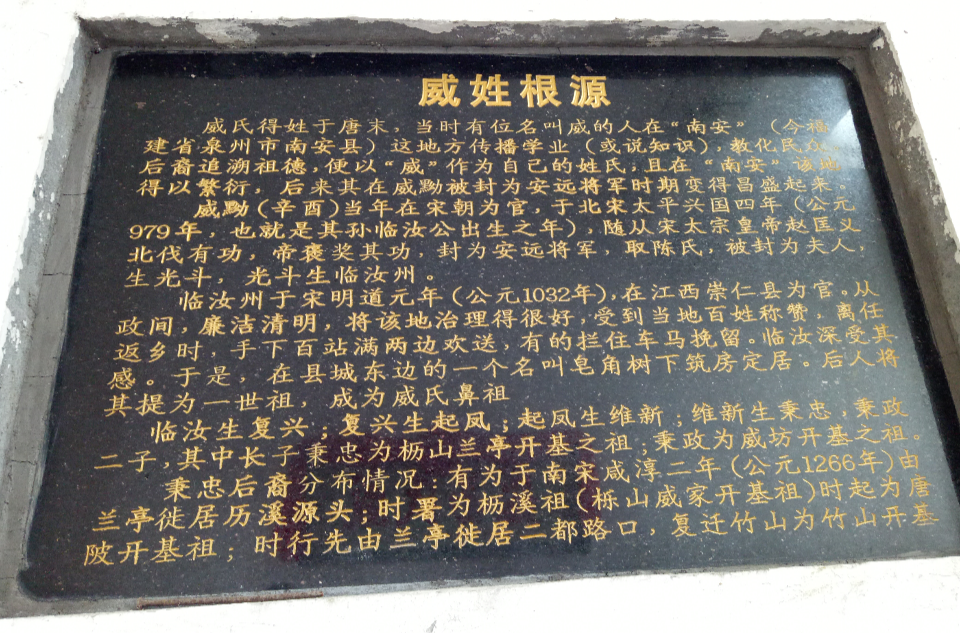 威姓根源
威氏得姓于唐末，当时有位名叫威的人在“南安”（今福
建省泉州市南安县）这地方传播学业（或说知识），教化民众，
后裔追溯祖德，便以“威”作为自己的姓氏，且在“南安”该地
得以繁衍，后来其在威黝被封为安远将军时期变得昌盛起来。
威黝（辛酉）当年在宋朝为官，于北宋太平兴国四年（公元
979年，也就是其孙临汝公出生之年），随从宋太宗皇帝赵匡义
北伐有功，帝褒奖其功，封为安远将军，取陈氏，被封为夫人，
生光斗，光斗生临汝州。
临汝州于宋明道元年（公元1032年），在江西崇仁县为官。从
政间，廉洁清明，将该地治理得很好，受到当地百姓称赞，离任
返乡时，手下百站满两边欢送，有的拦住车马挽留。临汝深受其
感。于是，在县城东边的一个名叫皂角树下筑房定居。后人将
其提为一世祖，成为威氏鼻祖
临汝生复兴；复兴生起凤；起凤生维新；维新生秉忠，秉政
二子，其中长子秉忠为枥山兰亭开基之祖；秉政为威坊开基之祖。
秉忠后裔分布情况：有为于南宋咸淳二年（公元1266年）由
兰亭徙居历溪源头；时署为枥溪祖（栎山威家开基祖）时起为唐
陂开基祖；时行先由兰亭徙居二都路口，复迁竹山为竹山开基